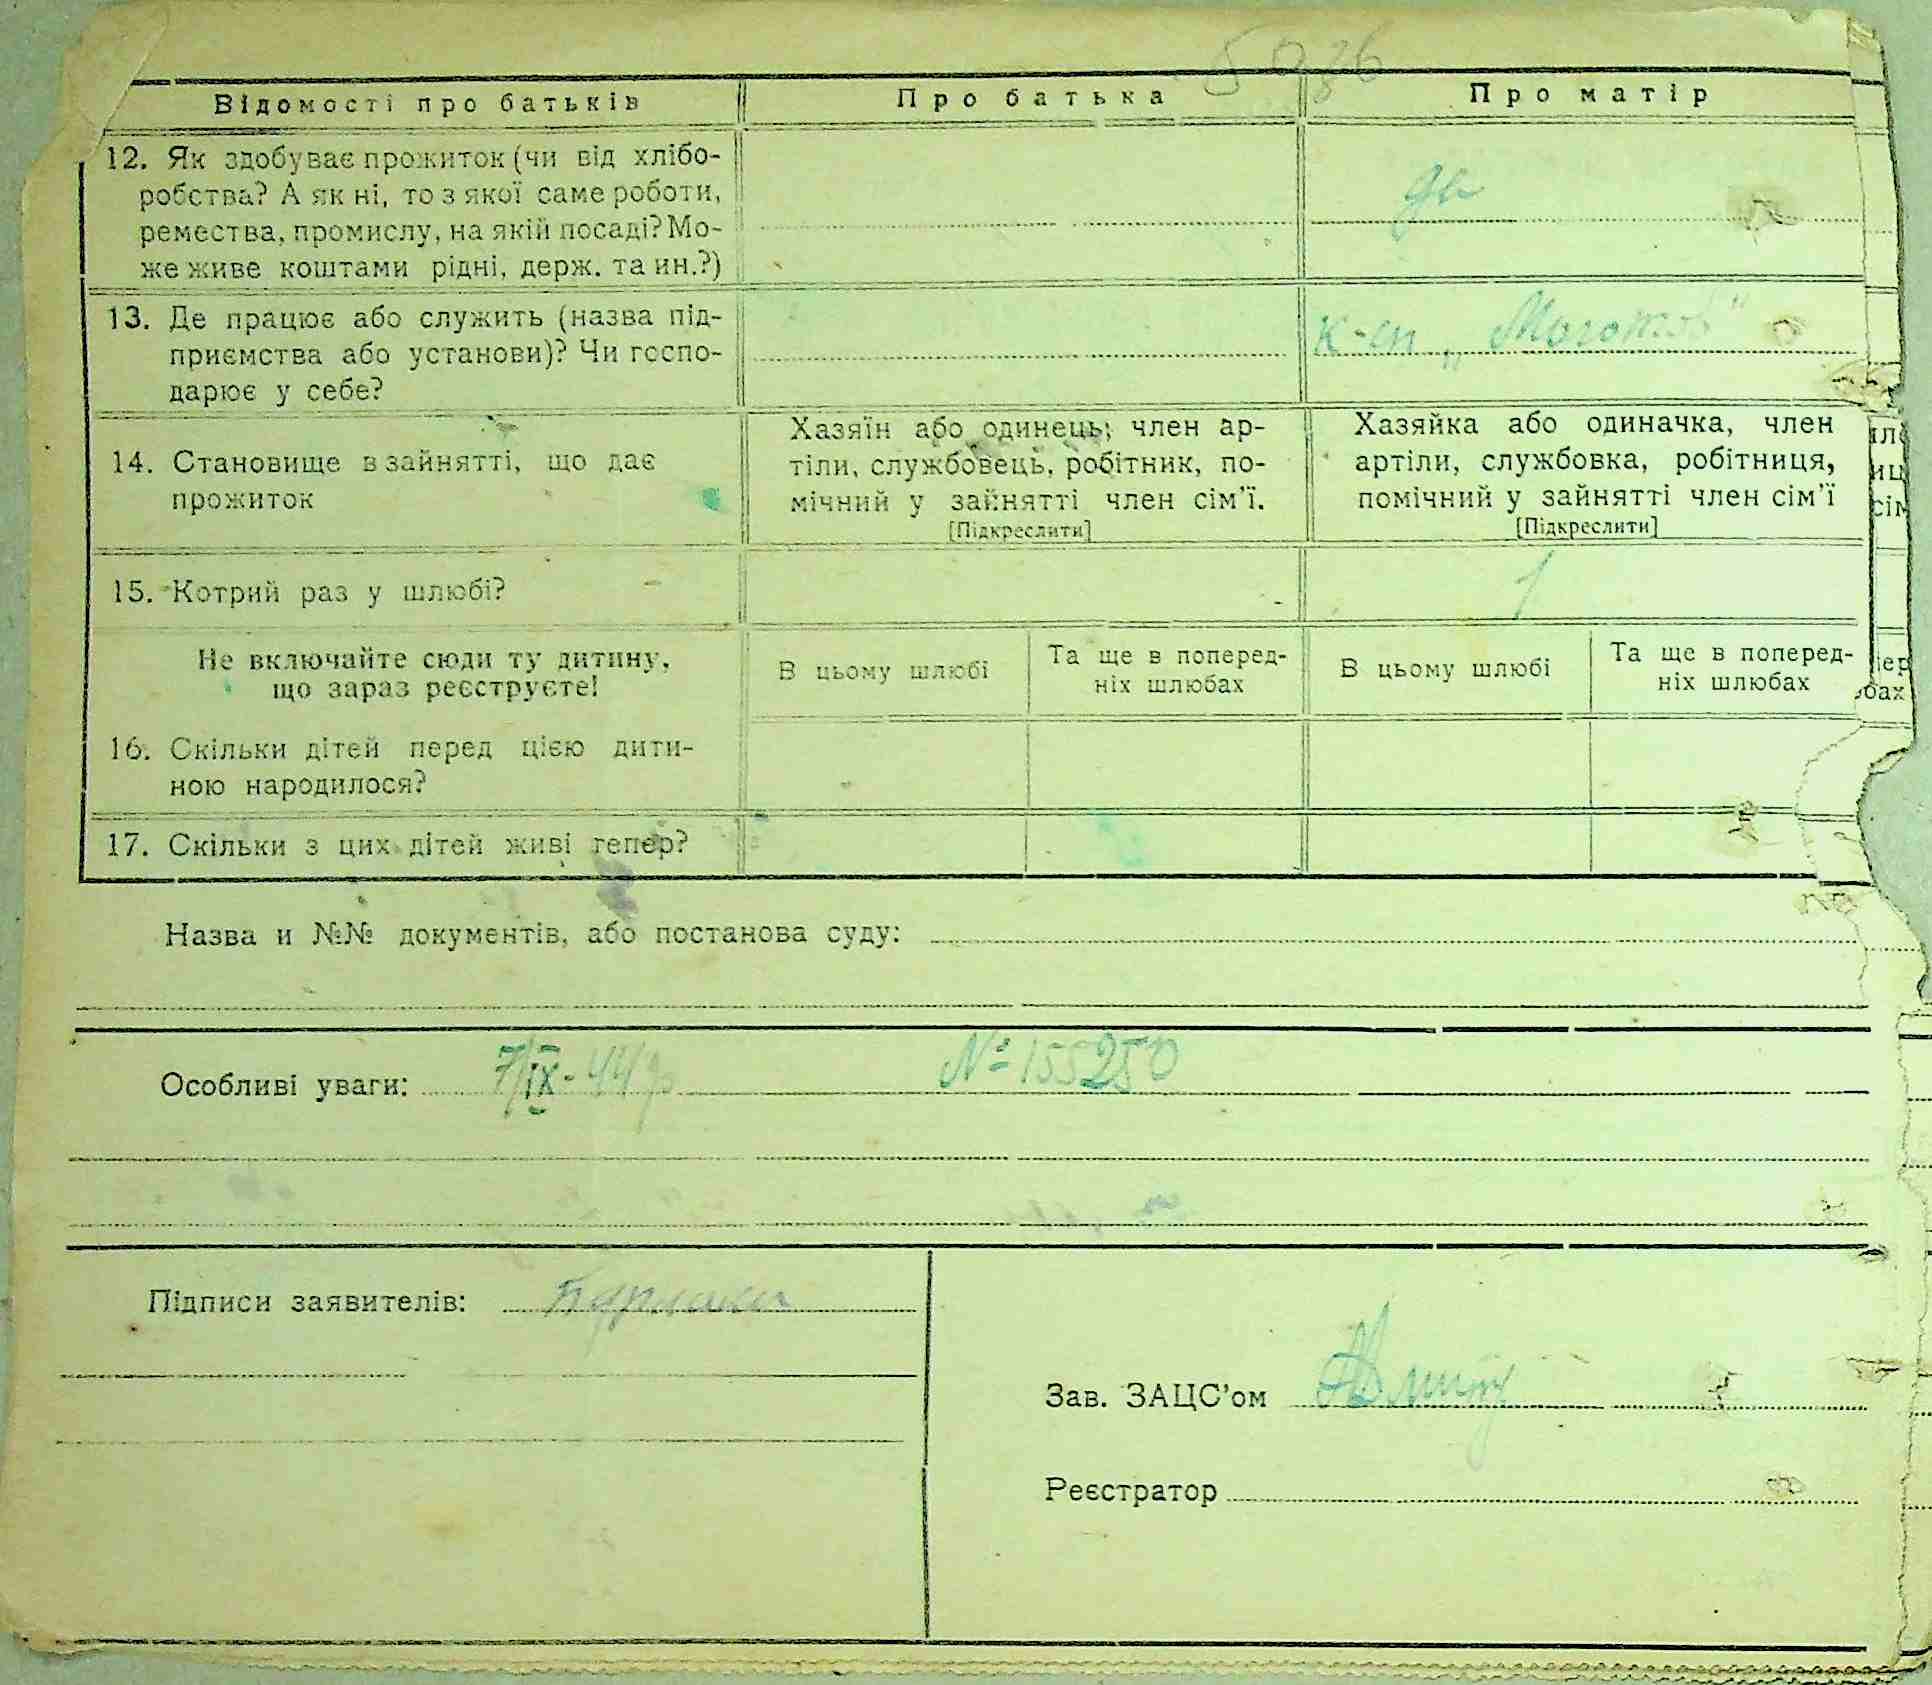 Відомості про батьків Про батька Про матір
12. Як здобуває прожиток (чи від хлібо-
робства? А як ні, то з якої саме роботи,
ремества, промислу, на якій посаді? Мо-
же живе коштами рідні, держ. та ин.?)
да
13. Де працює або служить (назва під-
приємства або установи)? Чи госпо-
дарює у себе?
к-сп „Молотов"
14. Становище в зайнятті, що дає
прожиток
Хазяїн або одинець, член ар-
тіли, службовець, робітник, по-
мічний у зайнятті член сім'ї.
[Підкреслити]
Хазяйка або одиначка, член
артіли, службовка, робітниця,
помічний у зайнятті член сім'ї
[Підкреслити]
15. Котрий раз у шлюбі? 1
Не включайте сюди ту дитину,
що зараз реєструєте!
В цьому шлюбі
Та ще в поперед-
ніх шлюбах
В цьому шлюбі
Та ще в поперед-
ніх шлюбах
16. Скільки дітей перед цією дити-
ною народилося?
17. Скільки з цих дітей живі тепер?
Назва и №№ документів, або постанова суду:
Особливі уваги: 7/IX-44р №155250
Підписи заявителів: Бурлака
Зав. ЗАЦС'ом
Реєстратор